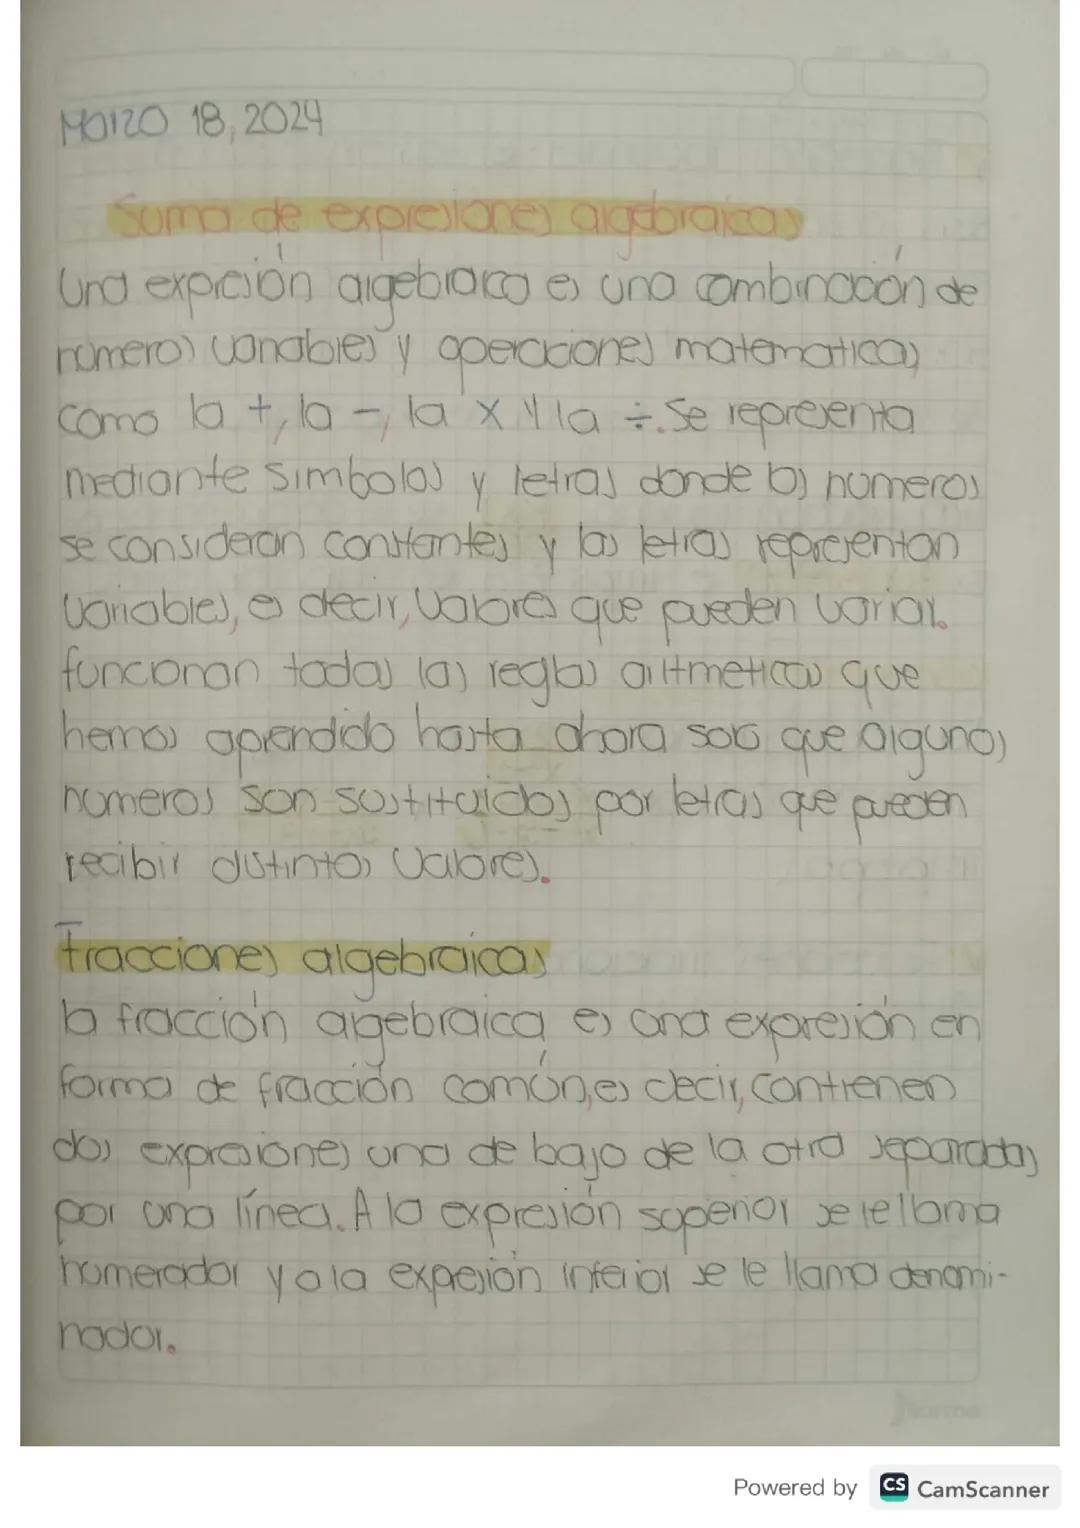 Marzo 18, 2024
Suma de expresiones algebraicas
Una expreión algebraica es una combinación de
números variables y operaciones matematicas
como la +, la -, la x y la ÷. Se representa
mediante simbolos y letras donde los numeros
se consideran constantes y las letras representan
variables, es decir, valores que pueden variar.
funcionan todas las reglas aritmeticas que
hemos aprendido hasta ahora solo que algunos
numeros son sustituidos por letras que pueden
recibir distintos valores.
Fracciones algebraicas
la fracción algebraica es una expresión en
forma de fracción común, es decir, contienen
dos expresiones una de bajo de la otra separadas
por una línea. A la expresión superior se le llama
numerador y a la expresión inferior se le llama denomi-
nador.
Norma
Powered by CS CamScanner